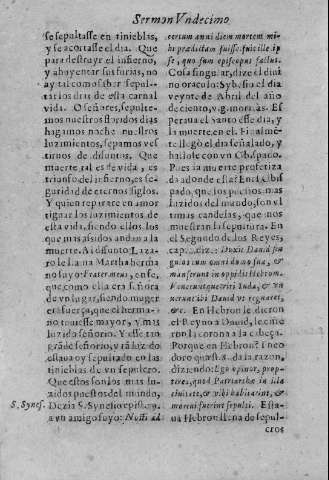 Sermon Vndecimo
se sepultasse en tinieblas,
y se acortasse el dia. Que
para destruyr el infierno,
y ahuyentar sus furias, no
ay tal como saber sepul-
tar los dias de esta carnal
vida. O señores, sepulte-
mos nuestros floridos dias
hagamos noche nuestros
luzimientos, sepamos ves
tirnos de difuntos. Que
muerte tal es de vida, es
triunfo del infierno, es se-
guridad de eternos siglos.
Y quien reparare en amor
tiguar los luzimientos de
esta vida, siendo ellos los
que mas asidos andan a la
muerte. Al difunto Laza-
ro le llama Martha herma
no suyo: Frater meus, en fe,
que como ella era señora
de vn lugar, siendo muger
era fuerça, que el herma-
no tuuiesse mayor, y mas
luzido señorio. Y esse tan
grãde señorio, y tã luzido
estaua oy sepultado en las
tinieblas de vn sepulcro.
Que estos son los mas lu-
zidos puestos del mundo.
Dezia S. Synesio epist.
a vn amigo suyo: Nosti ad
S. Synes.
certum anni diem mortem mi-
hi prædictam fuisse, fuit ille ip
se, quo sum episcopus factus.
Cosa singular, dize el diui
no oraculo: Sybesio el dia
veynte de Abril del año
de ciento, y g. moriras. Es
peraua el Santo esse dia, y
la muerte, en el. Finalmẽ-
te llegò el dia señalado, y
hallose con vn Obispado.
Pues la muerte profetiza
da adonde esta? En el Obis
pado, que los puestos mas
luzidos del mundo, son vl
timas candelas, que nos
muestran la sepultura. En
el Segundo de los Reyes,
cap. dize: Duxit Dauid sin
gulos cum omni domo sua, &
manserunt in oppidis Hebrom.
Veneruntque viri Iuda, & vn
xerunt ibi Dauid vt regnaret,
&c. En Hebron le dieron
el Reyno a Dauid, le cine
ron la corona a la cabeça.
Porque en Hebron? Theo
doro quæst. da la razon,
diziendo: Ego opinor, prop-
terea, quod Patriarchæ in illa
ciuitate, & vrbi habitarint, &
mortui fuerint sepulti. Esta-
ua Hebron llena de sepul-
cros